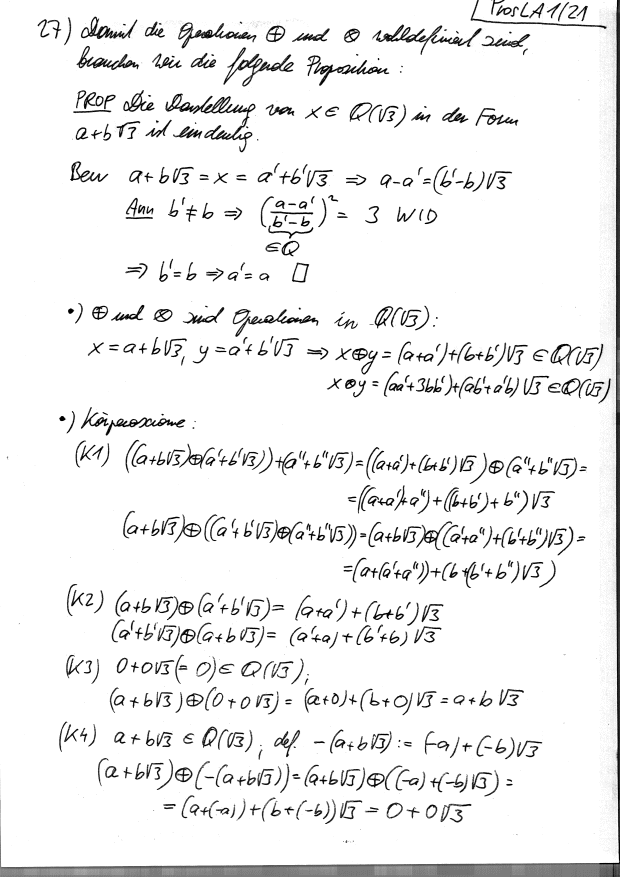 ProsLA1/21
27) Damit die Operationen ⊕ und ⊗ wohldefiniert sind,
brauchen wir die folgende Proposition:
PROP Die Darstellung von x ∈ Q(√3) in der Form
a+b√3 ist eindeutig.
Bew a+b√3 = x = a'+b'√3 ⇒ a-a' = (b'-b)√3
Ann b' ≠ b ⇒ ((a-a')/(b'-b))² = 3 WID
∈Q
⇒ b'=b ⇒ a'=a □
•) ⊕ und ⊗ sind Operationen in Q(√3):
x = a+b√3, y = a'+b'√3 ⇒ x⊕y = (a+a')+(b+b')√3 ∈ Q(√3)
x⊗y = (aa'+3bb')+(ab'+a'b)√3 ∈ Q(√3)
•) Körperaxiome:
(K1) ((a+b√3)⊕(a'+b'√3))+(a''+b''√3) = ((a+a')+(b+b')√3)⊕(a''+b''√3) =
= ((a+a')+a'')+((b+b')+b'')√3
(a+b√3)⊕((a'+b'√3)⊕(a''+b''√3)) = (a+b√3)⊕((a'+a'')+(b'+b'')√3) =
= (a+(a'+a''))+(b+(b'+b'')√3)
(K2) (a+b√3)⊕(a'+b'√3) = (a+a')+(b+b')√3
(a'+b'√3)⊕(a+b√3) = (a'+a)+(b'+b)√3
(K3) 0+0√3 (=0) ∈ Q(√3),
(a+b√3)⊕(0+0√3) = (a+0)+(b+0)√3 = a+b√3
(K4) a+b√3 ∈ Q(√3), def. -(a+b√3) := (-a)+(-b)√3
(a+b√3)⊕(-(a+b√3)) = (a+b√3)⊕((-a)+(-b)√3) =
= (a+(-a))+(b+(-b))√3 = 0+0√3